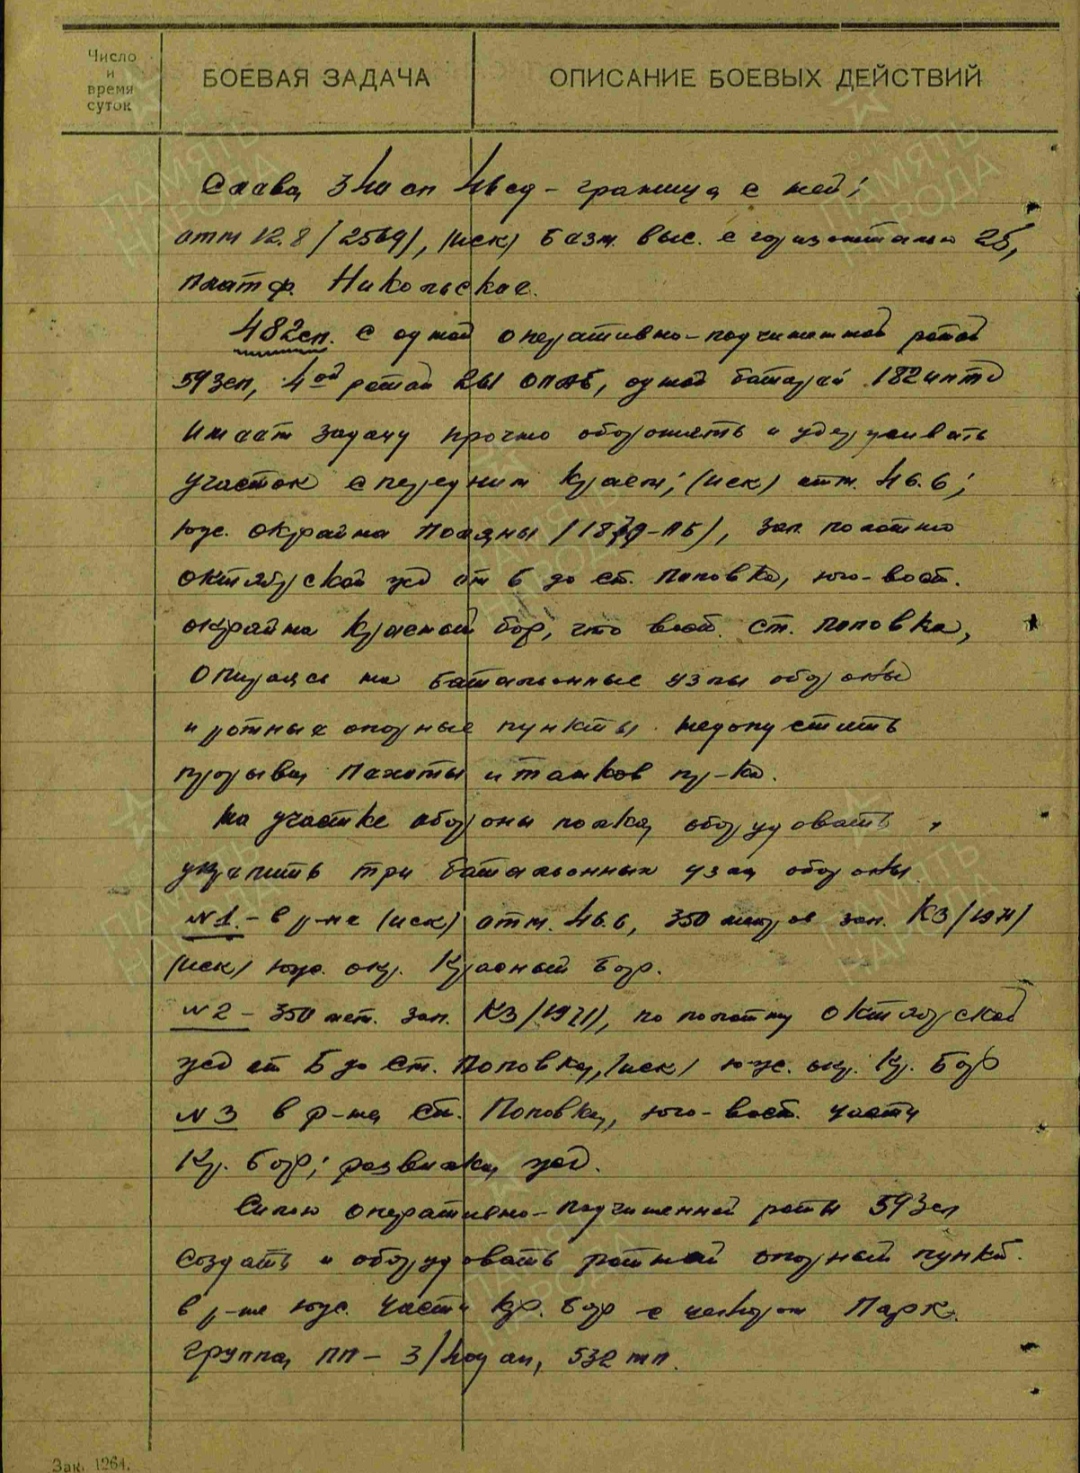 Число
и
время
суток
БОЕВАЯ ЗАДАЧА
ОПИСАНИЕ БОЕВЫХ ДЕЙСТВИЙ
Слева, сп сд - граница с ней;
отм 12.8 /2569/, (иск) безм. выс. с горизонталью 25,
платф. Никольское.
482сп. с одной оперативно-подчиненной ротой
59зсп, 4ой ротой 261 опаб, одной батареей 182иптд
имеет задачу прочно оборонять и удерживать
участок с передним краем; (иск) отм. 46.6;
юж. окраина Поляны, зап. полотно
октябрьской жд от Б до ст. Поповка, юго-вост.
окрайна Красный бор, что вост. ст. Поповка,
Опираясь на батальонные узлы обороны
и ротные опорные пункты недопустить
прорыва пехоты и танков пр-ка.
На участке обороны полка, оборудовать,
укрепить три батальонных узла обороны
№1. - в р-не (иск) отм. 46.6, 350 метров зап. КЗ /1971/
(иск) юж. окр. Красный бор.
№2 - 350 мет. зап. КЗ /1971/, по полотну Октябрьской
жд от Б до ст. Поповка, /иск/ юж. окр. Кр. Бор
№3 в р-не ст. Поповка, юго-вост. части
Кр. бор; развилка жд.
Силою оперативно-подчиненной роты 59зсп
создать и оборудовать ротный опорный пункт.
в р-не юж. части Кр. бор с центром Парк.
Группа ПП - 3/ ап, 532 мп.
Зак. 1264.
ПАМЯТЬ
НАРОДА
ПАМЯТЬ
НАРОДА
ПАМЯТЬ
НАРОДА
ПАМЯТЬ
НАРОДА
ПАМЯТЬ
НАРОДА
ПАМЯТЬ
НАРОДА